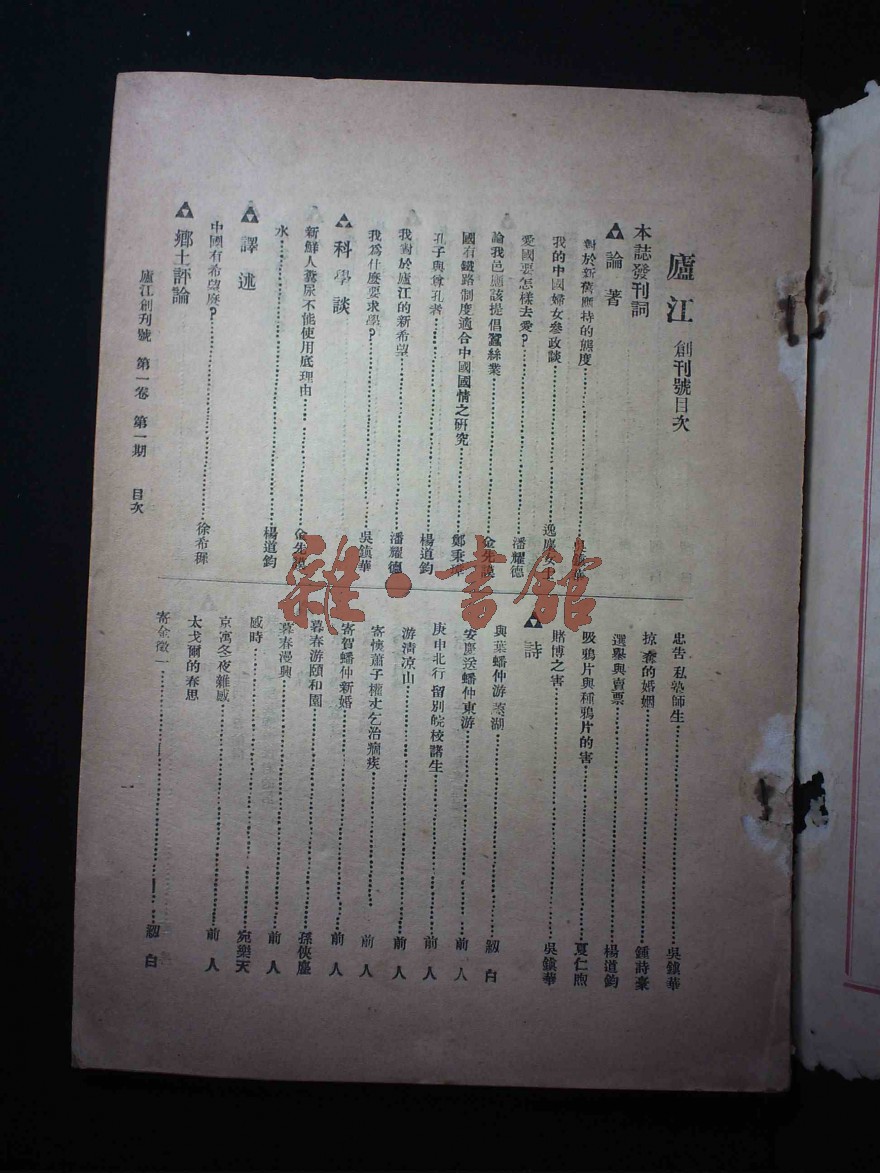 廬江 創刊號目次
本誌發刊詞
論著
對於新舊應持的態度 吳鎮華
我的中國婦女參政談 逸塵女士
愛國要怎樣去愛? 潘耀德
論我邑應該提倡蠶絲業 金先
國有鐵路制度適合中國國情之硏究 鄭秉璋
孔子與尊孔者 楊道鈞
我對於廬江的新希望 潘耀德
我爲什麼要求學? 吳鎮華
科學談
新鮮人糞尿不能使用底理由 金先
水 楊道鈞
譯述
中國有希望麼? 徐希
鄉土評論
廬江創刊號 第一卷 第一期 目次
忠告私塾師生 吳鎮華
掠奪的婚姻 鍾詩豪
選舉與賣票 楊道鈞
吸鴉片與種鴉片的害 夏仁煦
賭博之害 吳鎮華
詩
與葉蟠仲游蕪湖 芻白
安慶送蟠仲東游 前人
庚申北行留別皖校諸生 前人
游清凉山 前人
寄懷蕭子權丈乞治痼疾 前人
寄賀蟠仲新婚 前人
暮春游頤和園 孫俠塵
暮春漫興 前人
感時 宛樂天
京寓冬夜雜感 前人
太戈爾的春思
寄金徵一 芻白
雜·書館